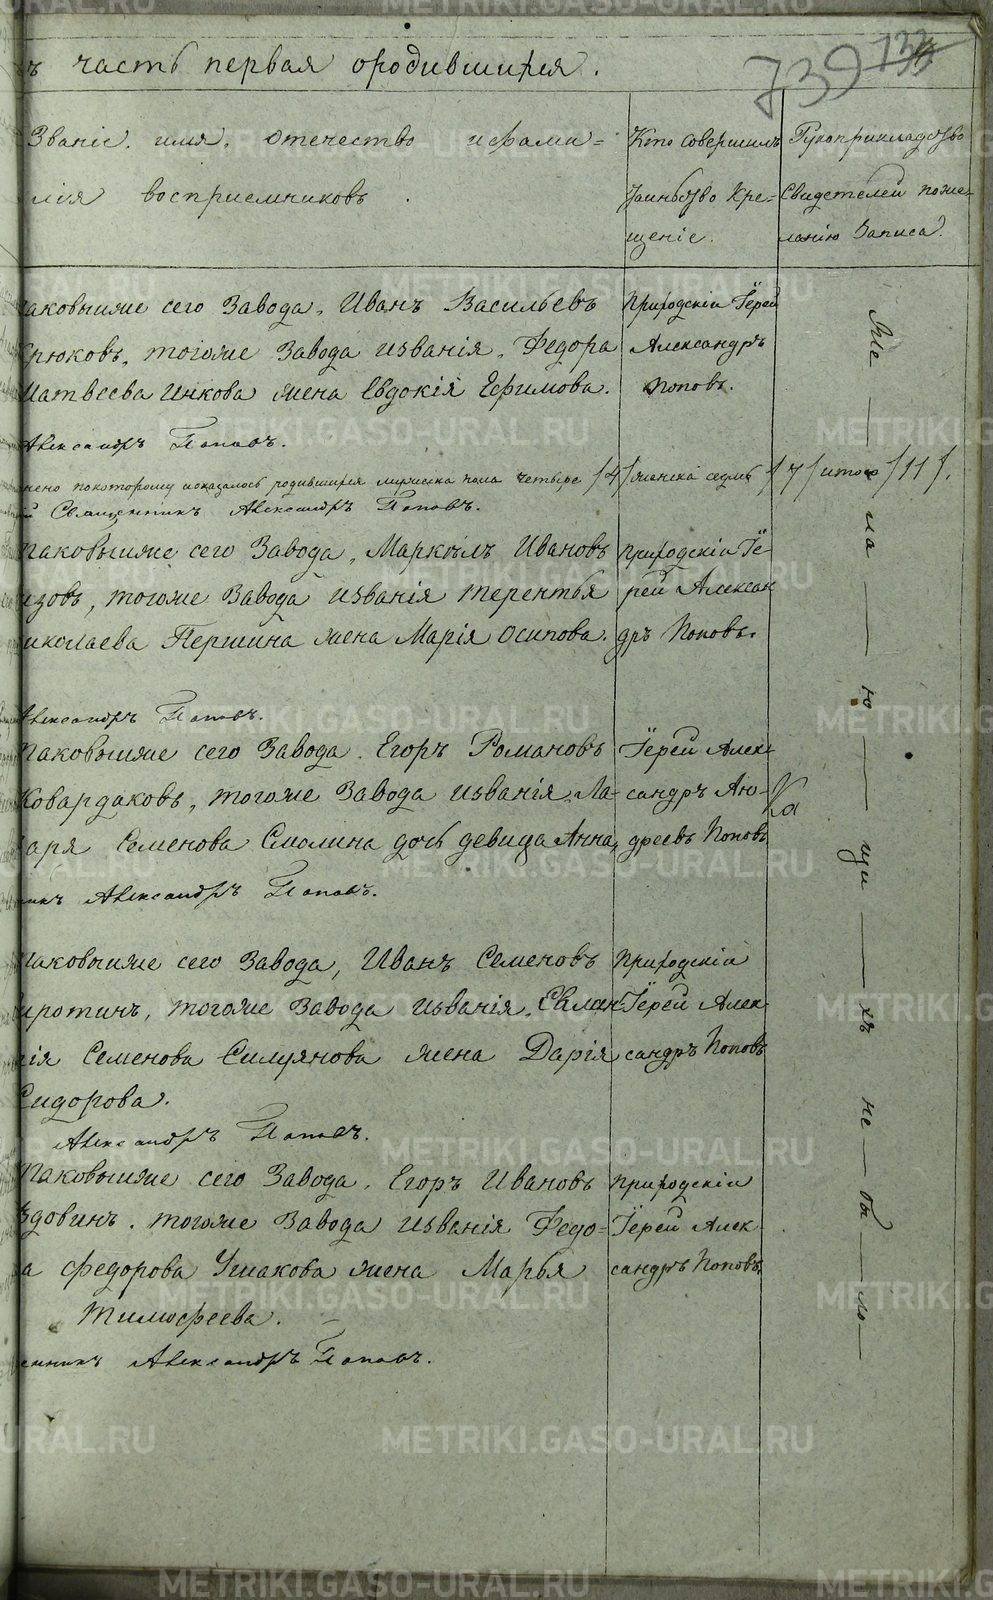 часть первая ородившихся.
739 132
Званіе, имя, отечество ифами=
лія восприемниковъ.
Кто совершилъ
Таинство Кре=
щеніе.
Рукоприкладство
Свидетелей поже=
ланію Записа.
таковыиже сего Завода, Иванъ Васильевъ
Крюковъ, тогоже Завода изванія, Федора
Матвеева Инкова жена Евдокія Ефимова.
Приходскіи Іерей
Александръ
Поповъ.
Александръ Поповъ.
покоторому исказалось родившихся мужеска пола четыре /4/ женска семь /7/ итого /11/.
Священникъ Александръ Поповъ.
таковыиже сего Завода, Маркилъ Ивановъ
тогоже Завода изванія терентья
николаева Першина жена Марія осипова.
приходскіи Іе=
рей Алексан
дръ Поповъ.
Александръ Поповъ.
таковыиже сего Завода, Егоръ Романовъ
Ковардаковъ, тогоже Завода изванія, Ла=
заря Семенова Смолина дочь девица Анна,
Іерей Алек=
сандръ Ан=
дреевъ Поповъ
Александръ Поповъ.
таковыиже сего Завода, Иванъ Семеновъ
Сиротинъ, тогоже Завода изванія, Евлам=
пія Семенова жена Дарія
Сидорова.
Приходскіи
Іерей Алек=
сандръ Поповъ
Александръ Поповъ.
таковыиже сего Завода, Егоръ Ивановъ
Вдовинъ, тогоже Завода изванія Федо=
ра федорова Ушакова жена Марья
Тимофеева.
приходскіи
Іерей Алек
сандръ Поповъ.
Александръ Поповъ.
Же — ла — ю — щи — хъ не — бы — ло —
METRIKI.GASO-URAL.RU